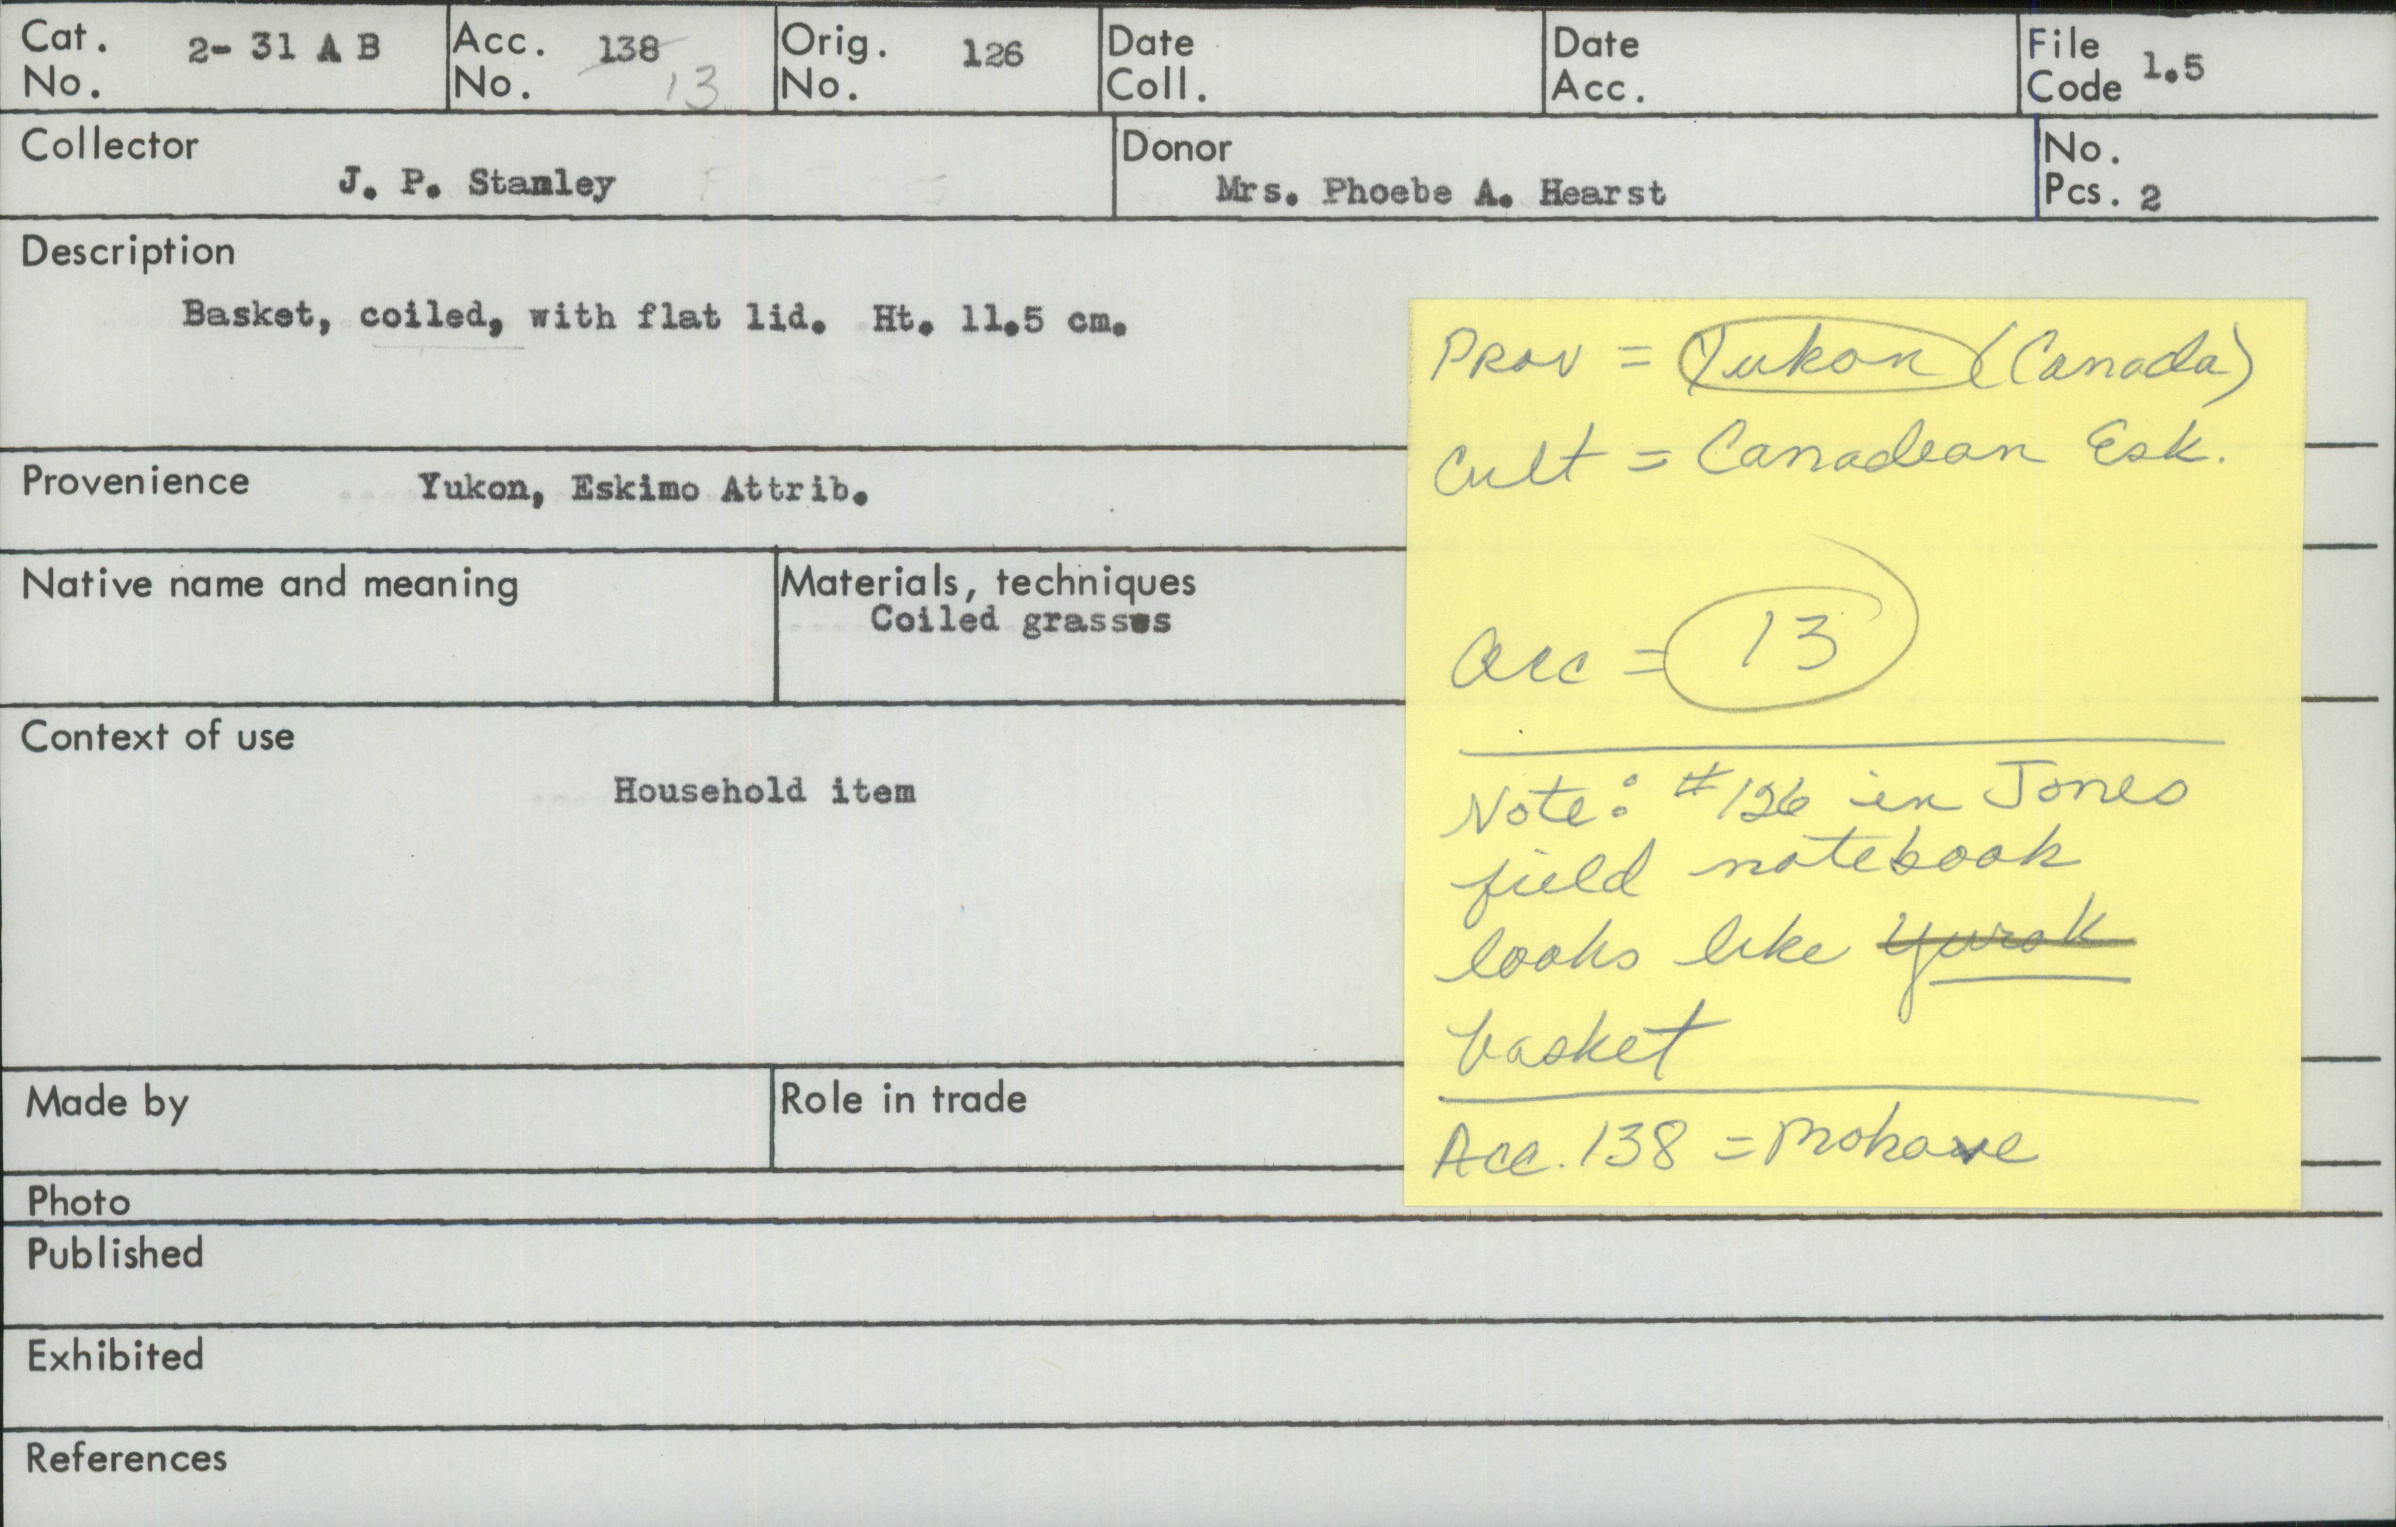 Cat. No. 2- 31 A B
Acc. No. 138 13
Orig. No. 126
Date Coll.
Date Acc.
File Code 1.5
Collector
J. P. Stanley
Donor
Mrs. Phoebe A. Hearst
No. Pcs. 2
Description
Basket, coiled, with flat lid. Ht. 11.5 cm.
Provenience Yukon, Eskimo Attrib.
Native name and meaning
Materials, techniques
Coiled grasses
Context of use
Household item
Made by
Role in trade
Photo
Published
Exhibited
References
Prov = Yukon (Canada)
Cult = Canadean Esk.
Acc = 13
Note: #126 in Jones
field notebook
looks like Yurok
basket
Acc. 138 = Mohave